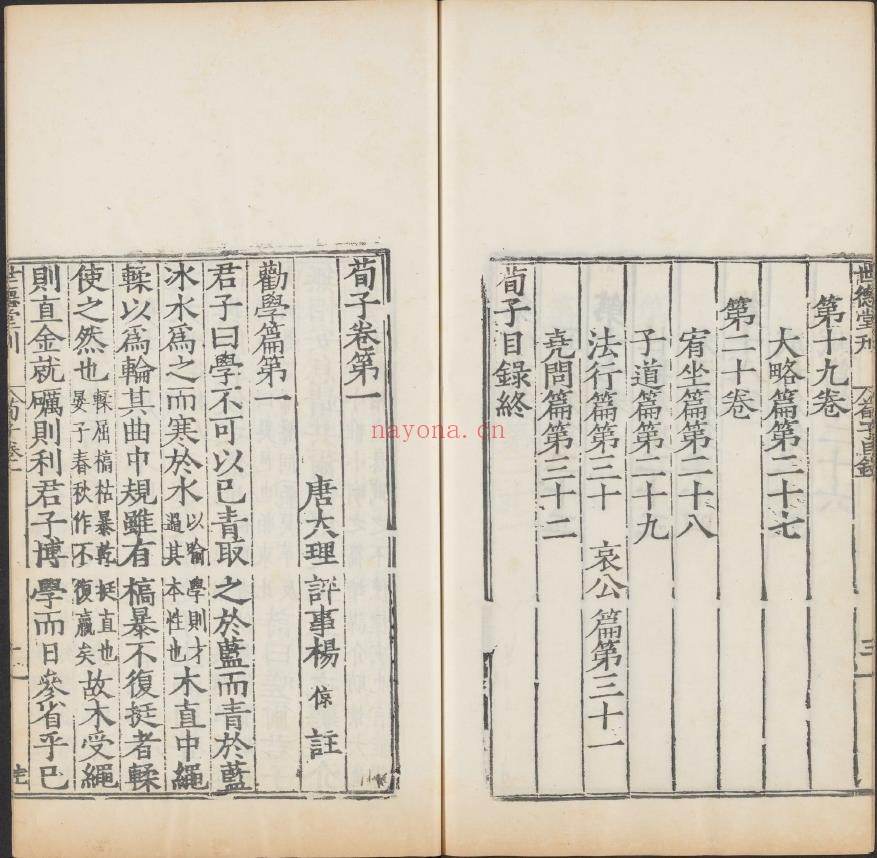 世德堂刊 荀子目錄 三
第十九卷
大略篇第二十七
第二十卷
宥坐篇第二十八
子道篇第二十九
法行篇第三十 哀公篇第三十一
堯問篇第三十二
荀子目錄終
荀子卷第一
唐大理評事楊倞註
勸學篇第一
君子曰學不可以已青取之於藍而青於藍
冰水爲之而寒於水以喻學則才過其本性也木直中繩
輮以爲輪其曲中規雖有槁暴不復挺者輮
使之然也輮屈槁枯暴乾挺直也晏子春秋作不復羸矣故木受繩
則直金就礪則利君子博學而日參省乎己
世德堂刊 荀子卷一
nayona.cn